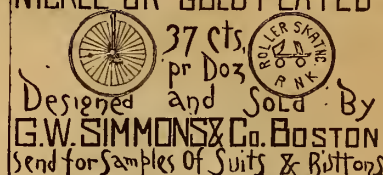 NICKLE OR GOLD PLATED
37 cts.
pr Doz
ROLLER SKATNG
RNK
Designed and Sold By
G.W. SIMMONS & Co. BOSTON
Send for Samples Of Suits & Buttons